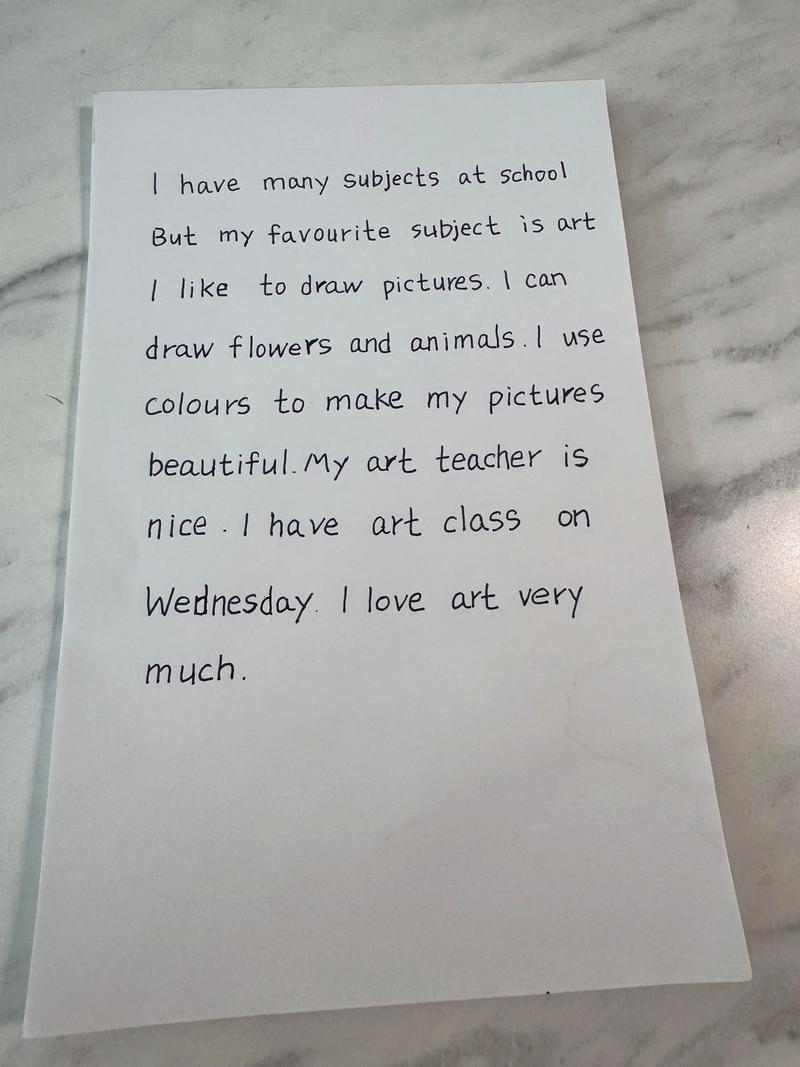 I have many subjects at school
But my favourite subject is art
I like to draw pictures. I can
draw flowers and animals. I use
colours to make my pictures
beautiful. My art teacher is
nice. I have art class on
Wednesday. I love art very
much.